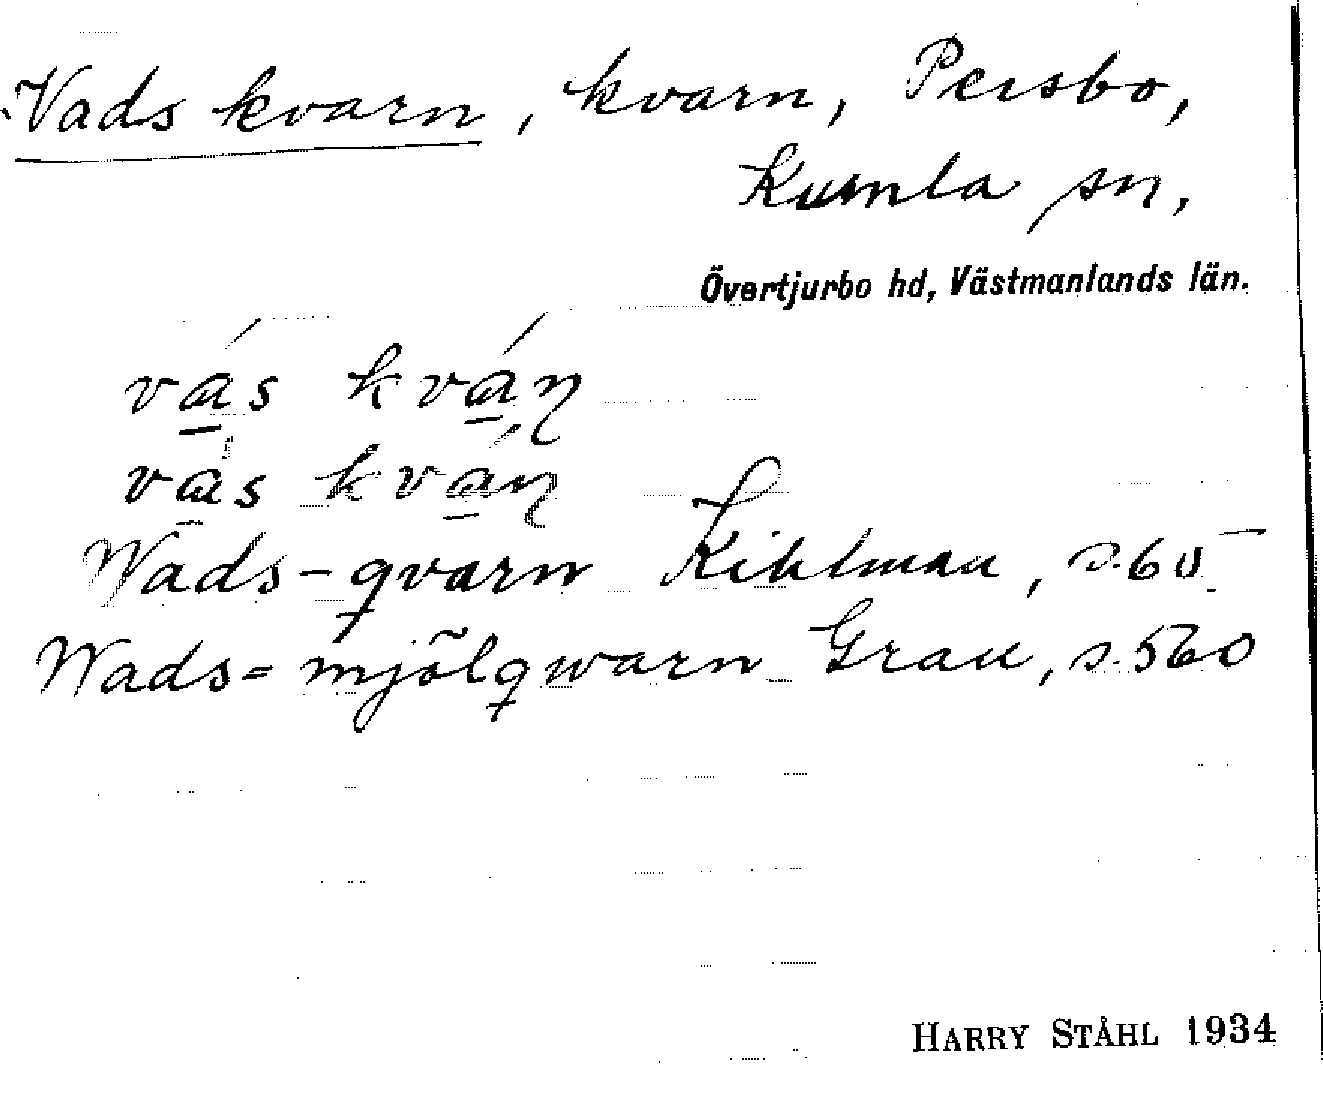 Vads kvarn, kvarn, Persbo,
Kumla sn,
Övertjurbo hd, Västmanlands län.
vás kváɳ
vás kváɳ
Wads-qvarn Kihlman, s. 65
Wads=mjölqwarn Grau, s. 560
HARRY STÅHL 1934